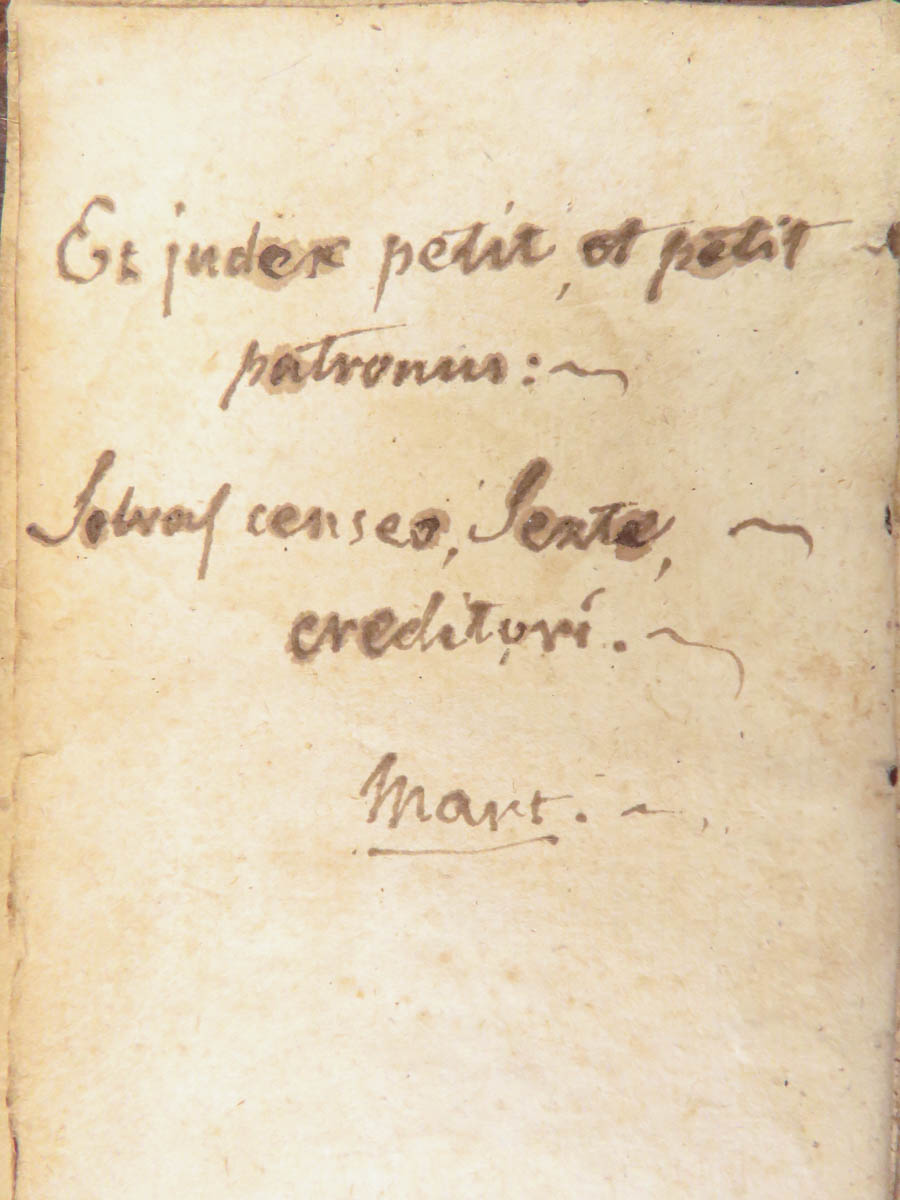 Et judex petit, et petit ~
patronus: ~
Solvas censeo, Sexte, ~
creditori. ~
Mart. ~